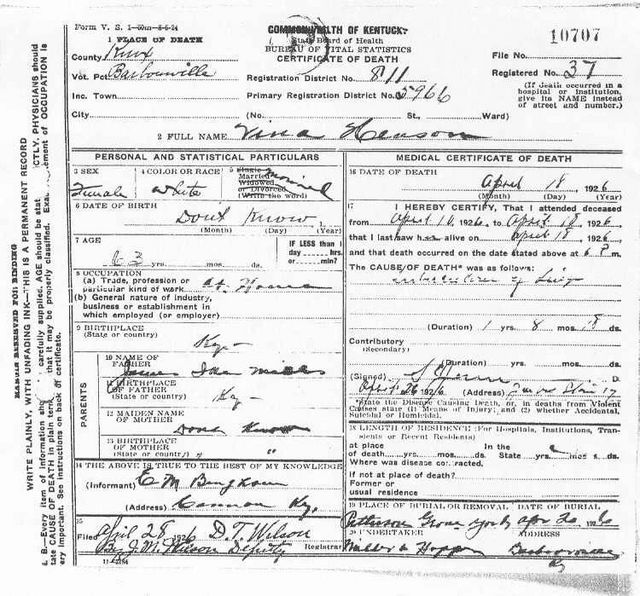 Form V. S. 1-50m-8-6-24
COMMONWEALTH OF KENTUCKY
State Board of Health
BUREAU OF VITAL STATISTICS
CERTIFICATE OF DEATH
10707
1 PLACE OF DEATH
County Knox
Vot. Pct. Barbourville
Inc. Town
City
Registration District No. 811
Primary Registration District No. 5966
(No. St., Ward)
File No.
Registered No. 37
(If death occurred in a
hospital or institution,
give its NAME instead
of street and number.)
2 FULL NAME Vina Henson
PERSONAL AND STATISTICAL PARTICULARS
3 SEX
Female
4 COLOR OR RACE
White
5 Single
Married
Widowed
or Divorced
(Write the word)
6 DATE OF BIRTH
Dont Know
(Month) (Day) (Year)
7 AGE
63
yrs. mos. ds.
IF LESS than 1
day hrs.
or min?
8 OCCUPATION
(a) Trade, profession or
particular kind of work At Home
(b) General nature of industry,
business or establishment in
which employed (or employer)
9 BIRTHPLACE
(State or country) Ky-
PARENTS
10 NAME OF
FATHER James
11 BIRTHPLACE
OF FATHER
(State or country) Ky-
12 MAIDEN NAME
OF MOTHER Dont Know
13 BIRTHPLACE
OF MOTHER
(State or country) "
14 THE ABOVE IS TRUE TO THE BEST OF MY KNOWLEDGE
(Informant) E M
(Address) Cannon Ky.
15
Filed April 28 1926 D. T. Wilson
By J. M. Wilson Deputy Registrar
11-4-2184
MEDICAL CERTIFICATE OF DEATH
16 DATE OF DEATH
April 18, 1926
(Month) (Day) (Year)
17 I HEREBY CERTIFY, That I attended deceased
from April 10, 1926, to April 18, 1926
that I last saw her alive on April 18, 1926
and that death occurred on the date stated above at 6 P. m.
The CAUSE OF DEATH* was as follows:
tuberculosis of
(Duration) 1 yrs. 8 mos. 18 ds.
Contributory
(Secondary)
(Duration) yrs. mos. ds.
(Signed) D.
April 26 1926 (Address)
*State the Disease Causing Death, or, in deaths from Violent
Causes state (1) Means of Injury; and (2) whether Accidental,
Suicidal or Homicidal.
18 LENGTH OF RESIDENCE (For Hospitals, Institutions, Tran-
sients or Recent Residents)
at place In the
of death yrs. mos. ds. State mos. ds.
Where was disease contracted,
If not at place of death?
Former or
usual residence
19 PLACE OF BURIAL OR REMOVAL DATE OF BURIAL
Patterson Grave Yard Apr 20 1926
20 UNDERTAKER ADDRESS
Miller & Hopper Barbourville
Ky
MARGIN RESERVED FOR BINDING
WRITE PLAINLY, WITH UNFADING INK—THIS IS A PERMANENT RECORD